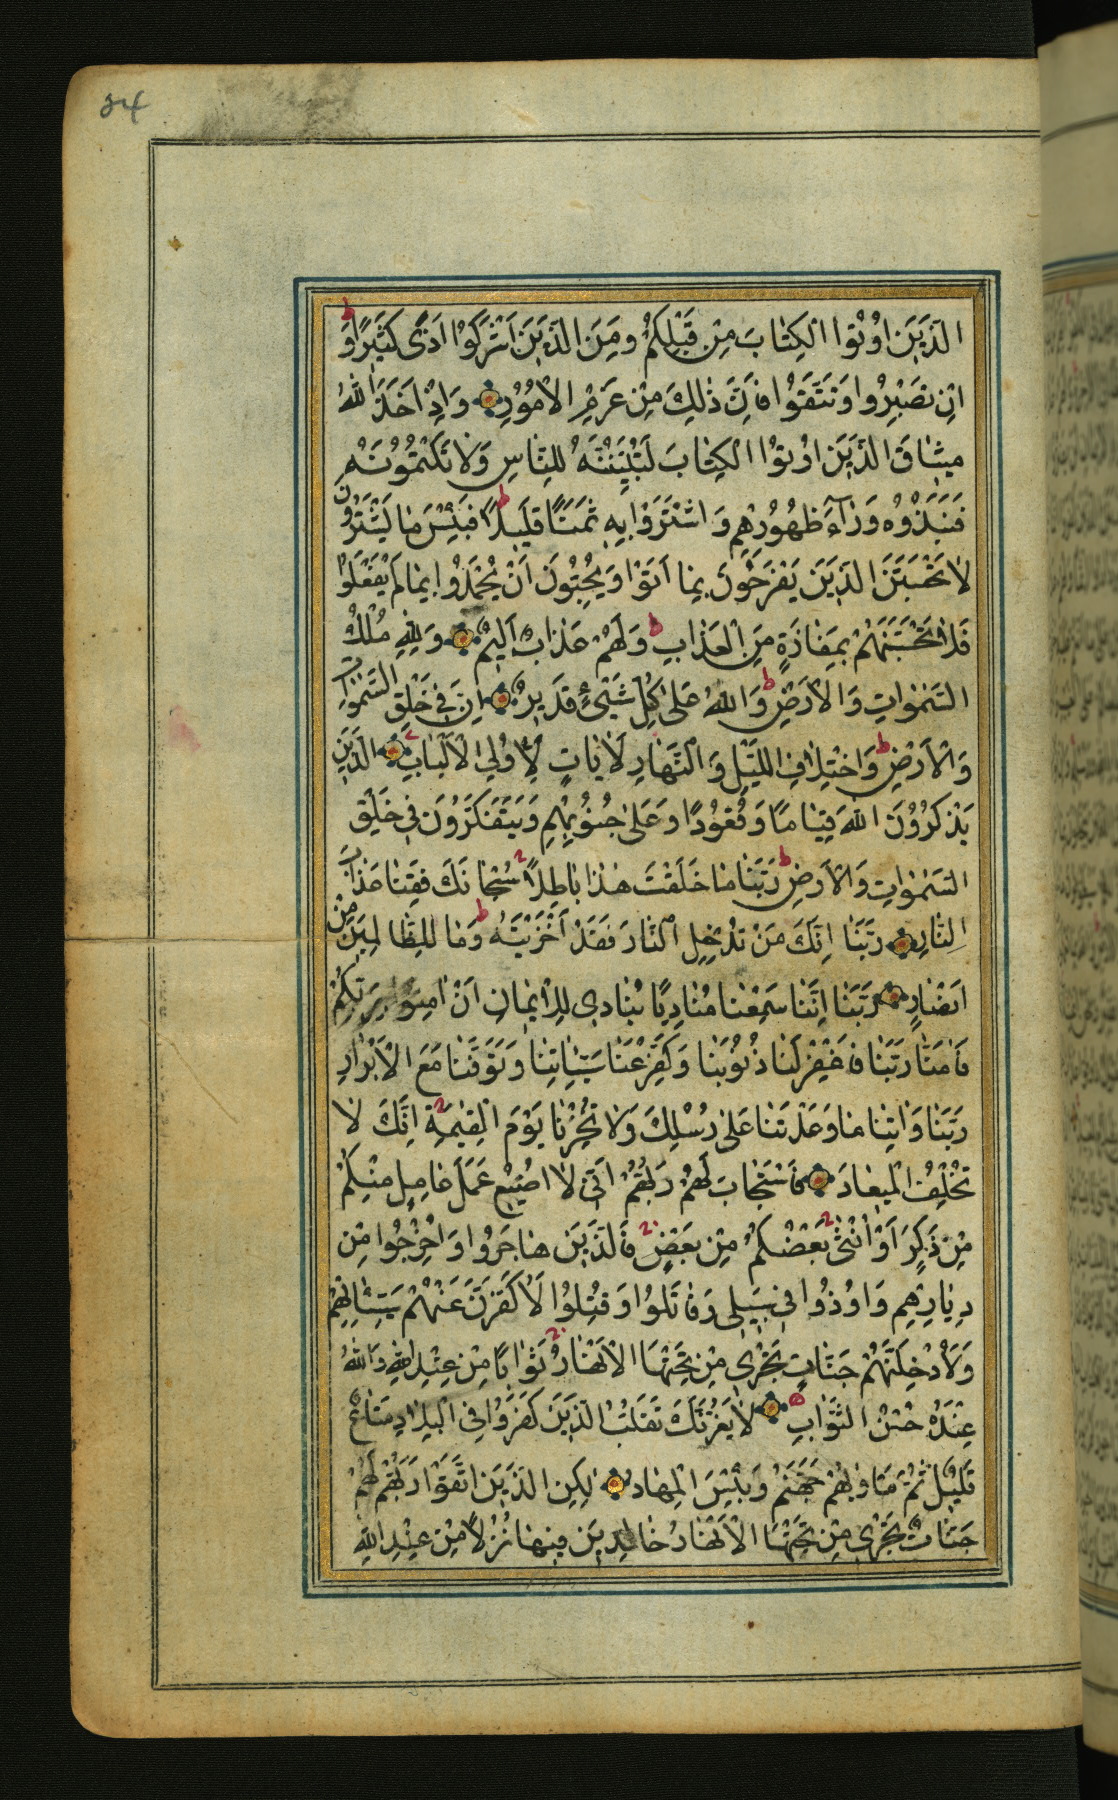 34
الَّذِينَ اُوتُوا الْكِتَابَ مِنْ قَبْلِكُمْ وَمِنَ الَّذِينَ اَشْرَكُوا اَذًى كَثِيرًا وَ
اِنْ تَصْبِرُوا وَتَتَّقُوا فَاِنَّ ذٰلِكَ مِنْ عَزْمِ الْاُمُورِ وَاِذْ اَخَذَ اللهُ
مِيثَاقَ الَّذِينَ اُوتُوا الْكِتَابَ لَتُبَيِّنُنَّهُ لِلنَّاسِ وَلَا تَكْتُمُونَهُ
فَنَبَذُوهُ وَرَآءَ ظُهُورِهِمْ وَاشْتَرَوْا بِهِ ثَمَنًا قَلِيلًا فَبِئْسَ مَا يَشْتَرُونَ
لَا تَحْسَبَنَّ الَّذِينَ يَفْرَحُونَ بِمَا اَتَوْا وَيُحِبُّونَ اَنْ يُحْمَدُوا بِمَا لَمْ يَفْعَلُوا
فَلَا تَحْسَبَنَّهُمْ بِمَفَازَةٍ مِنَ الْعَذَابِ وَلَهُمْ عَذَابٌ اَلِيمٌ وَلِلّٰهِ مُلْكُ
السَّمٰوَاتِ وَالْاَرْضِ وَاللهُ عَلٰى كُلِّ شَيْئٍ قَدِيرٌ اِنَّ فِي خَلْقِ السَّمٰوَاتِ
وَالْاَرْضِ وَاخْتِلَافِ اللَّيْلِ وَالنَّهَارِ لَاٰيَاتٍ لِاُولِي الْاَلْبَابِ الَّذِينَ
يَذْكُرُونَ اللهَ قِيَامًا وَقُعُودًا وَعَلٰى جُنُوبِهِمْ وَيَتَفَكَّرُونَ فِي خَلْقِ
السَّمٰوَاتِ وَالْاَرْضِ رَبَّنَا مَا خَلَقْتَ هٰذَا بَاطِلًا سُبْحَانَكَ فَقِنَا عَذَابَ
النَّارِ رَبَّنَا اِنَّكَ مَنْ تُدْخِلِ النَّارَ فَقَدْ اَخْزَيْتَهُ وَمَا لِلظَّالِمِينَ مِنْ
اَنْصَارٍ رَبَّنَا اِنَّنَا سَمِعْنَا مُنَادِيًا يُنَادِي لِلْاِيمَانِ اَنْ اٰمِنُوا بِرَبِّكُمْ
فَاٰمَنَّا رَبَّنَا فَاغْفِرْ لَنَا ذُنُوبَنَا وَكَفِّرْ عَنَّا سَيِّئَاتِنَا وَتَوَفَّنَا مَعَ الْاَبْرَارِ
رَبَّنَا وَاٰتِنَا مَا وَعَدْتَنَا عَلٰى رُسُلِكَ وَلَا تُخْزِنَا يَوْمَ الْقِيٰمَةِ اِنَّكَ لَا
تُخْلِفُ الْمِيعَادَ فَاسْتَجَابَ لَهُمْ رَبُّهُمْ اَنِّي لَا اُضِيعُ عَمَلَ عَامِلٍ مِنْكُمْ
مِنْ ذَكَرٍ اَوْ اُنْثٰى بَعْضُكُمْ مِنْ بَعْضٍ فَالَّذِينَ هَاجَرُوا وَاُخْرِجُوا مِنْ
دِيَارِهِمْ وَاُوذُوا فِي سَبِيلِي وَقَاتَلُوا وَقُتِلُوا لَاُكَفِّرَنَّ عَنْهُمْ سَيِّئَاتِهِمْ
وَلَاُدْخِلَنَّهُمْ جَنَّاتٍ تَجْرِي مِنْ تَحْتِهَا الْاَنْهَارُ ثَوَابًا مِنْ عِنْدِ اللهِ وَاللهُ
عِنْدَهُ حُسْنُ الثَّوَابِ لَا يَغُرَّنَّكَ تَقَلُّبُ الَّذِينَ كَفَرُوا فِي الْبِلَادِ مَتَاعٌ
قَلِيلٌ ثُمَّ مَاْوٰيهُمْ جَهَنَّمُ وَبِئْسَ الْمِهَادُ لٰكِنِ الَّذِينَ اتَّقَوْا رَبَّهُمْ لَهُمْ
جَنَّاتٌ تَجْرِي مِنْ تَحْتِهَا الْاَنْهَارُ خَالِدِينَ فِيهَا نُزُلًا مِنْ عِنْدِ اللهِ